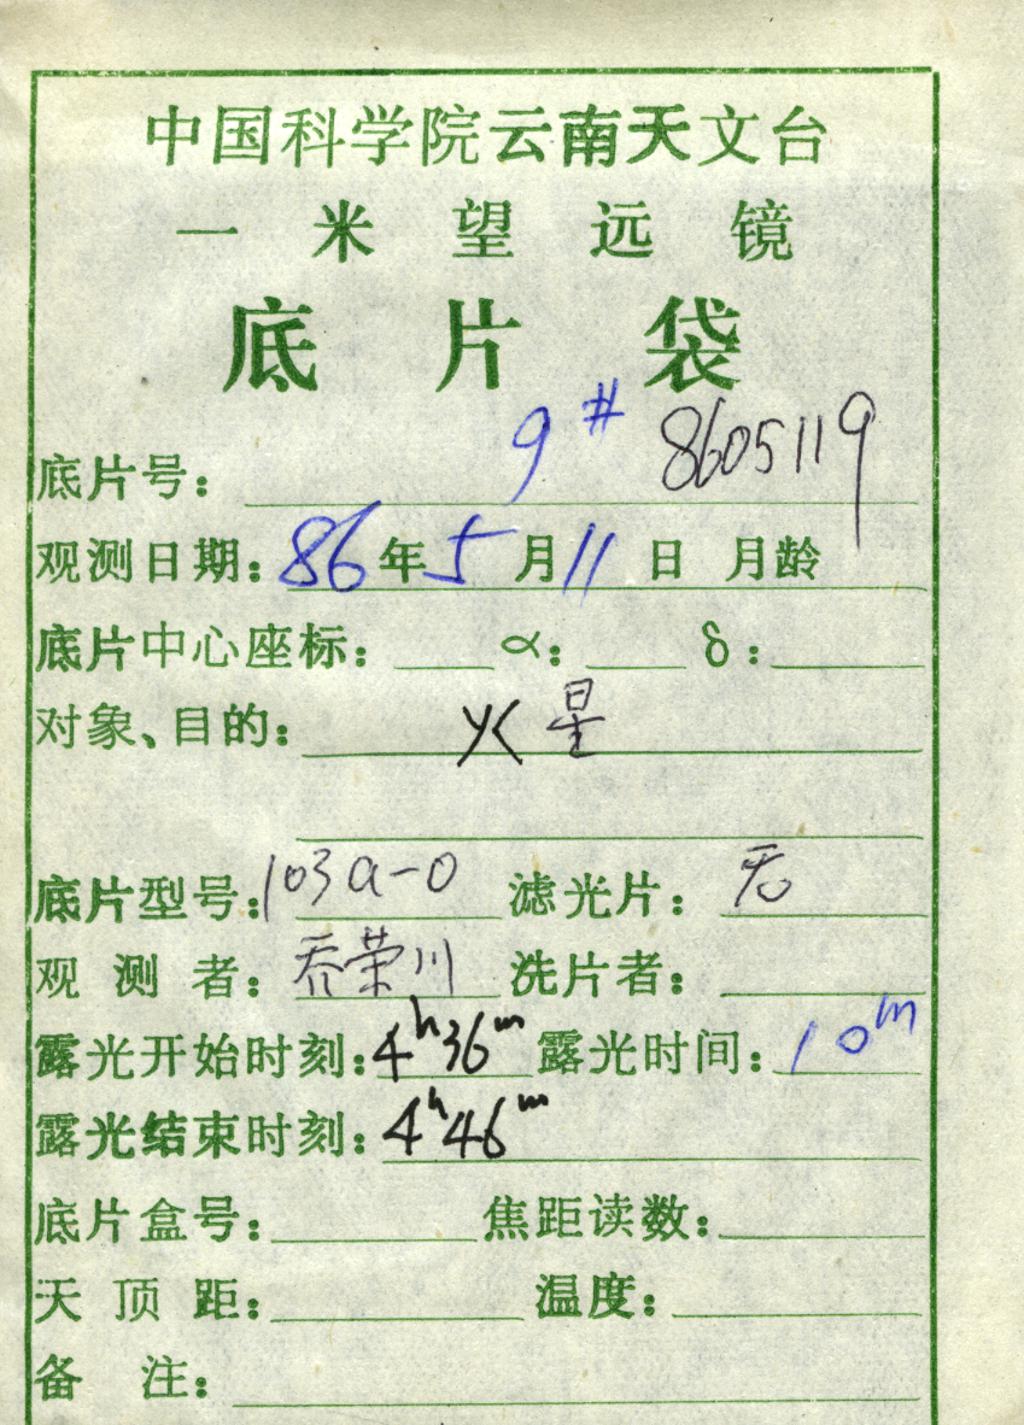 中国科学院云南天文台
一米望远镜
底片袋
底片号： 9# 8605119
观测日期：86年5月11日 月龄
底片中心座标： α： δ：
对象、目的： 火星
底片型号：103a-0 滤光片：无
观测者：乔荣川 洗片者：
露光开始时刻：4h36m 露光时间：10m
露光结束时刻：4h46m
底片盒号： 焦距读数：
天顶距： 温度：
备注：